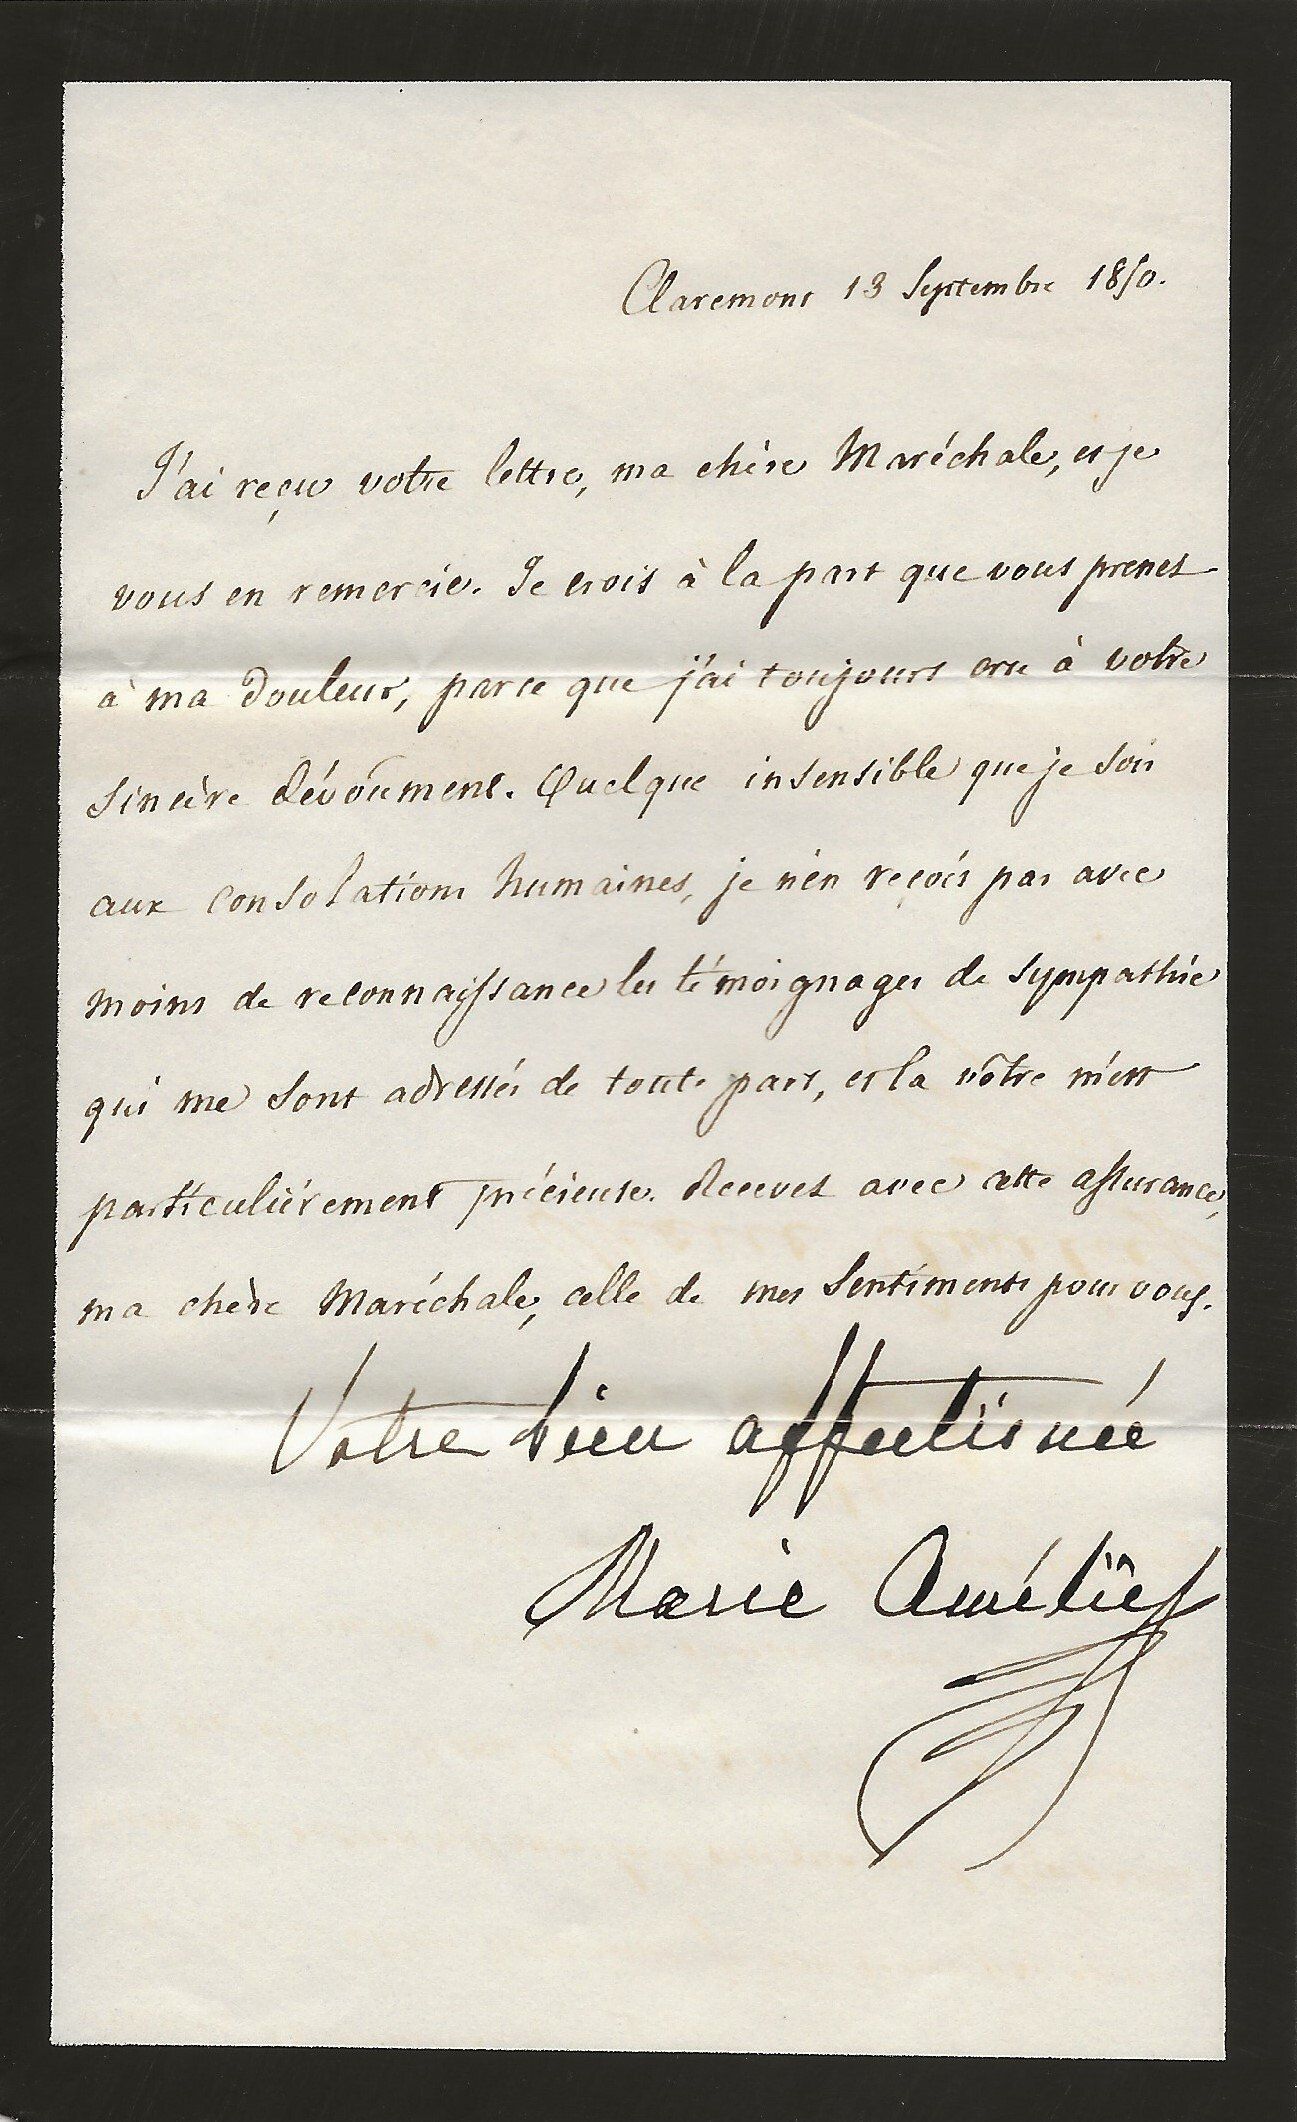 Claremont 13 Septembre 1850.
J'ai reçu votre lettre, ma chère Maréchale, et je
vous en remercie. Je crois à la part que vous prenez
à ma douleur, parce que j'ai toujours cru à votre
sincère dévoûment. Quelque insensible que je sois
aux consolations humaines, je n'en reçois pas avec
moins de reconnaissance les témoignages de sympathie
qui me sont adressés de toute part, et la vôtre m'est
particulièrement précieuse. Recevez avec cette assurance,
ma chère Maréchale, celle de mes sentiments pour vous.
Votre bien affectionnée
Marie Amélie